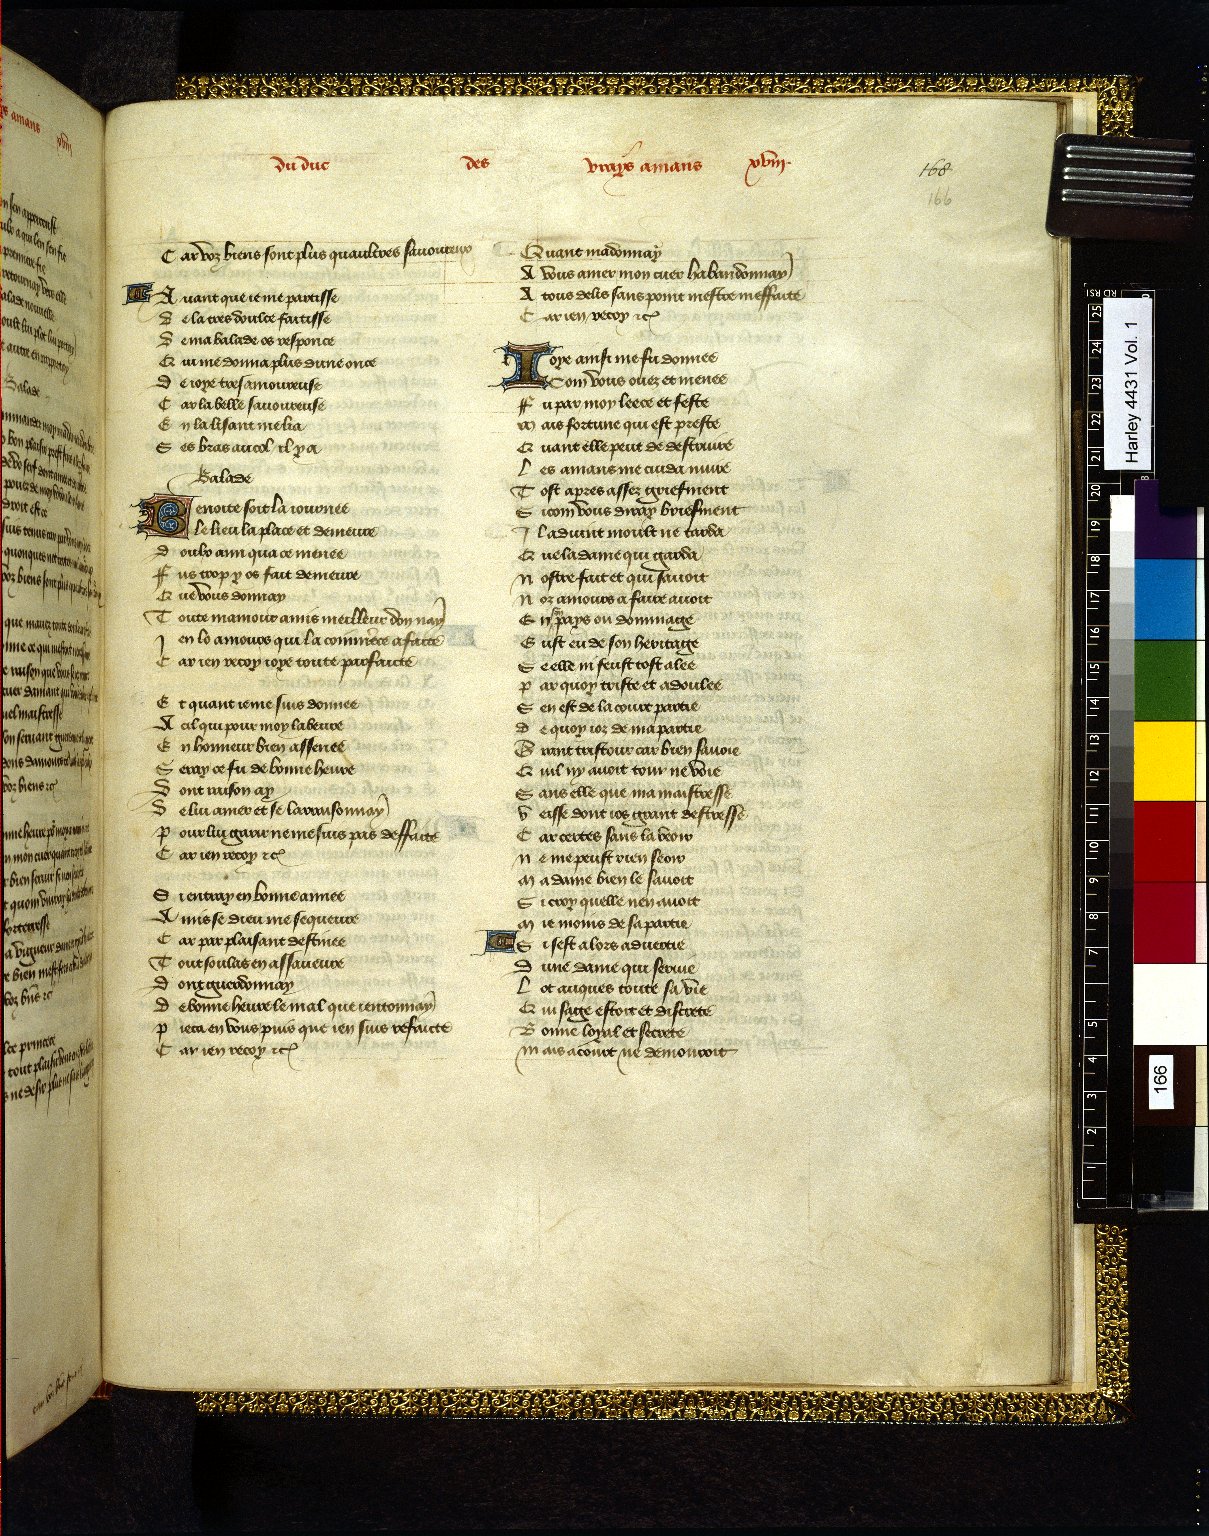 Du duc des vrays amans xviii.
168
166
Car voz biens sont plus quaultres savoureux
Avant que ie me partisse
De la tres doulce faitisse
De ma balade os responce
Qui me donna plus dune once
De ioye tres amoureuse
Car la belle savoureuse
En la lisant me lia
Ses bras au col il y a
Balade
Benoite soit la iournee
Le lieu la place et demeure
Doulx ami qua ce menee
Fus trop y os fait demeure
Que vous donnay
Toute mamour amis meilleur don nay
Jen lo amours qui la commẽce a faitte
Car ien reçoy ioye toute parfaitte
Et quant ie me suis donnee
A cil qui pour moy labeure
En honneur bien assenee
Seray ce fu de bonne heure
Dont raison ay
De lui amer et se larraisonnay
Pour lui garir ne me suis pas deffaitte
Car ien reçoy etc
Si entray en bonne annee
Amis se dieu me sequeure
Car par plaisant destinee
Tout soulas en assaveure
Dont guerdonnay
De bonne heure le mal que ientonnay
Pieca en vous puis que ien suis refaitte
Car ien reçoy etc
Quant madonnay
A vous amer mon cuer habandonnay
A tous delis sans point mestre meffaitte
Car ien reçoy etc
Ioye ainsi me fu donnee
Com vous ouez et menee
Fu par moy leece et feste
Mais fortune qui est preste
Quant elle peut de destruire
Les amans me cuida nuire
Tost apres assez griefment
Sicom vous diray briefment
Il advint moult ne tarda
Que la dame qui garda
Nostre fait et qui savoit
Noz amours a faire avoit
En son pays ou dommage
Eust eu de son heritage
Se elle ni feust tost alee
Par quoy triste et adoulee
Sen est de la court partie
De quoy ioz de ma partie
Grant tristour car bien savoie
Quil ny avoit tour ne voie
Sans elle que ma maistresse
Veisse dont ios grant destresse
Car certes sans la veoir
Ne me peust rien seoir
Ma dame bien le savoit
Si croy quelle nen avoit
Mie moins de sa partie
Si sest alors advertie
Dune dame qui servie
Lot auques toute sa vie
Qui sage estoit et discrete
Bonne loyal et secrete
Mais a court ne demouroit
Harley 4431 Vol. 1
166